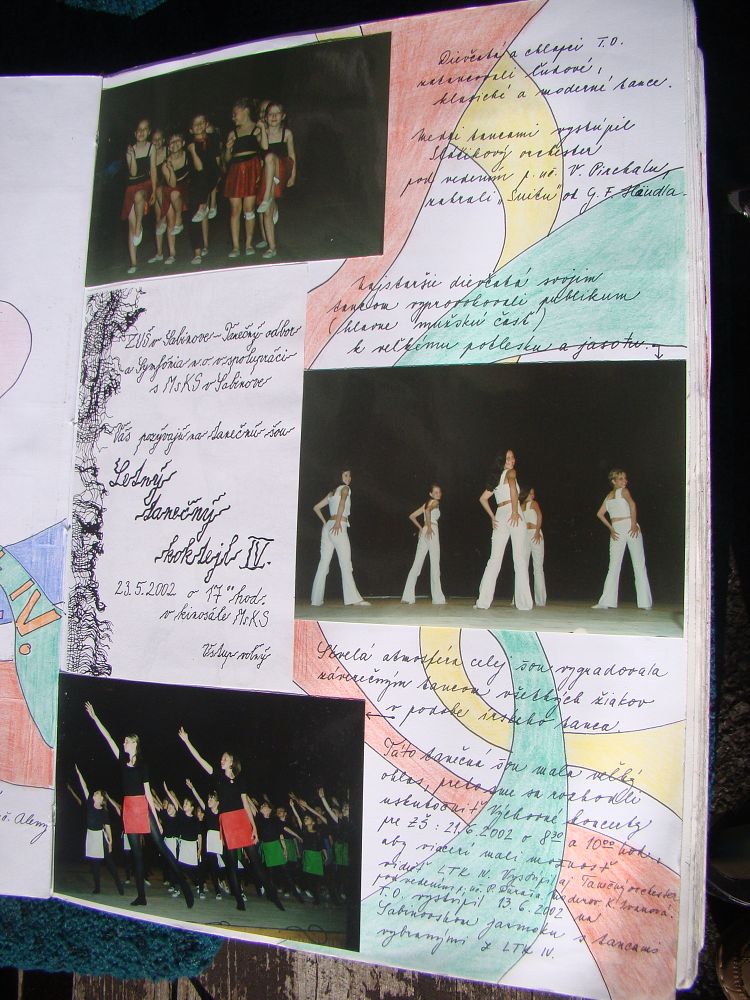 Dievčatá a chlapci T.O.
natancovali ľudové,
klasické a moderné tance.
Medzi tancami vystúpil
Sláčikový orchester
pod vedením p. uč. V.
zahrali „Suitu" od G. F. Händla.
Najstaršie dievčatá svojim
tancom vyprovokovali publikum
(hlavne mužskú časť)
k veľkému potlesku a jasotu.
ZUŠ v Sabinove - Tanečný odbor
a Symfónia n.o. v spolupráci
s MsKS v Sabinove
Vás pozývajú na tanečnú šou
Letný
tanečný
koktejl IV.
23.5.2002 o 17°° hod.
v kinosále MsKS
Vstup voľný
IV.
Skvelá atmosféra celej šou vygradovala
záverečným tancom všetkých žiakov
v podobe írskeho tanca.
Táto tanečná šou mala veľký
ohlas, preto sme sa rozhodli
uskutočniť Výchovné koncerty
pre ZŠ: 21.6.2002 o 8³⁰ a 10⁰⁰ hod.,
aby viacerí mali možnosť
vidieť LTK IV. Vystúpil aj Tanečný orchester
pod vedením p. uč. P.
T.O. vystúpil 13.6.2002 na
Sabinovskom jarmoku s tancami
vybranými z LTK IV.